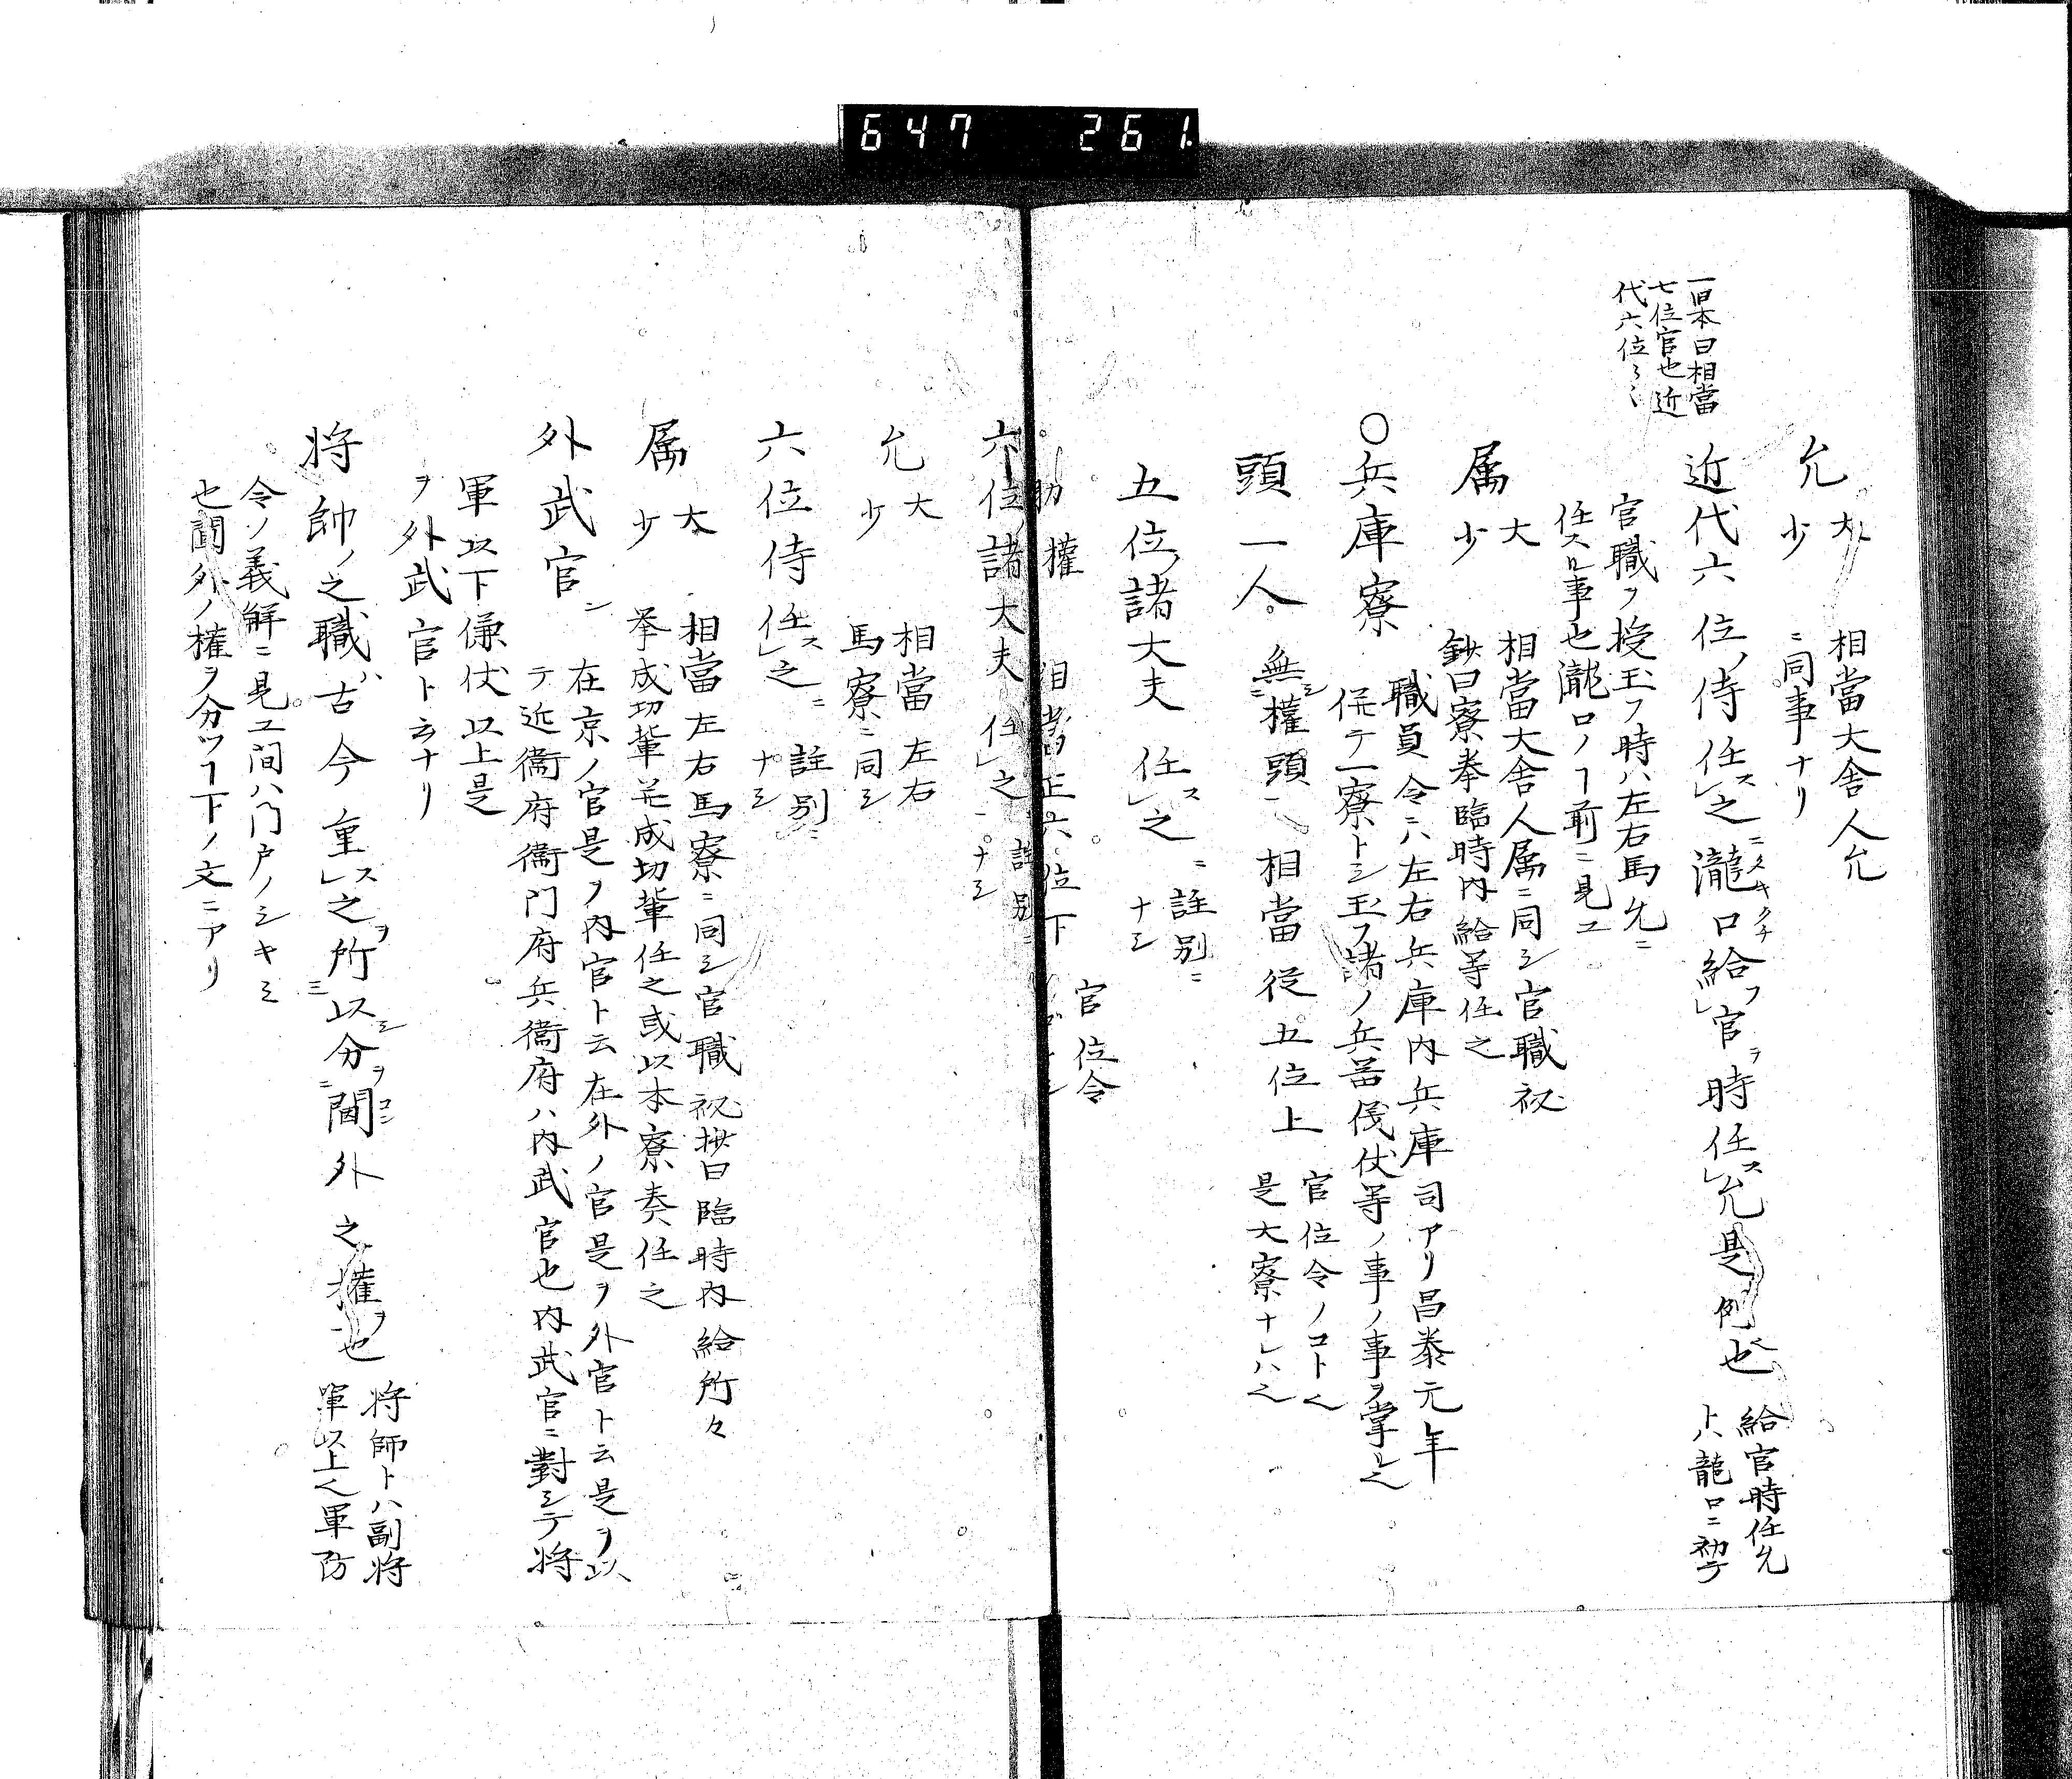 647 261
一旧本曰相當
七位官也近
代六位云々
允 大少 相當大舎人允
ニ同事ナリ
近代六位ノ侍任スレ之ニ瀧口給レフ官ヲ時任スレ允是例也 給官時任允
トハ瀧口ニ初テ
官職ヲ授玉フ時ハ左右馬允ニ
任スル事也瀧口ノヿ前ニ見ユ
属 大少 相當大舎人属ニ同シ官職秘
鈔曰寮奏臨時内給等任之
○兵庫寮 職員令ニハ左右兵庫内兵庫司アリ昌泰元年
併テ一寮トシ玉フ諸ノ兵器儀仗等ノ事ノ事ヲ掌ル
頭一人 無シ二權頭一 相當從五位上 官位令ノコト
是大寮ナレハ
五位諸大夫任スレ之ニ 註別ニ
ナシ
助 權 相當正六位下 官位令
六位諸大夫任レ之 註別ニ
ナシ
允 大少 相當左右
馬寮ニ同シ
六位侍任スレ之ニ 註別ニ
ナシ
属 大少 相當左右馬寮ニ同シ官職秘抄曰臨時内給所々
挙成功輩并成功輩任之或以本寮奏任之
外武官 在京ノ官是ヲ内官ト云在外ノ官是ヲ外官ト云是ヲ以
テ近衛府衛門府兵衛府ハ内武官也内武官ニ對シテ将
軍以下傔仗以上是
ヲ外武官ト云ナリ
将帥ノ之職ハ古今重スレ之ヲ所三以シ分ヲ二閫外之權ヲ一也 将師トハ副将
軍以上軍防
令ノ義解ニ見ユ閫ハ門戸ノシキミ
也閫外ノ權ヲ分ツヿ下ノ文ニアリ